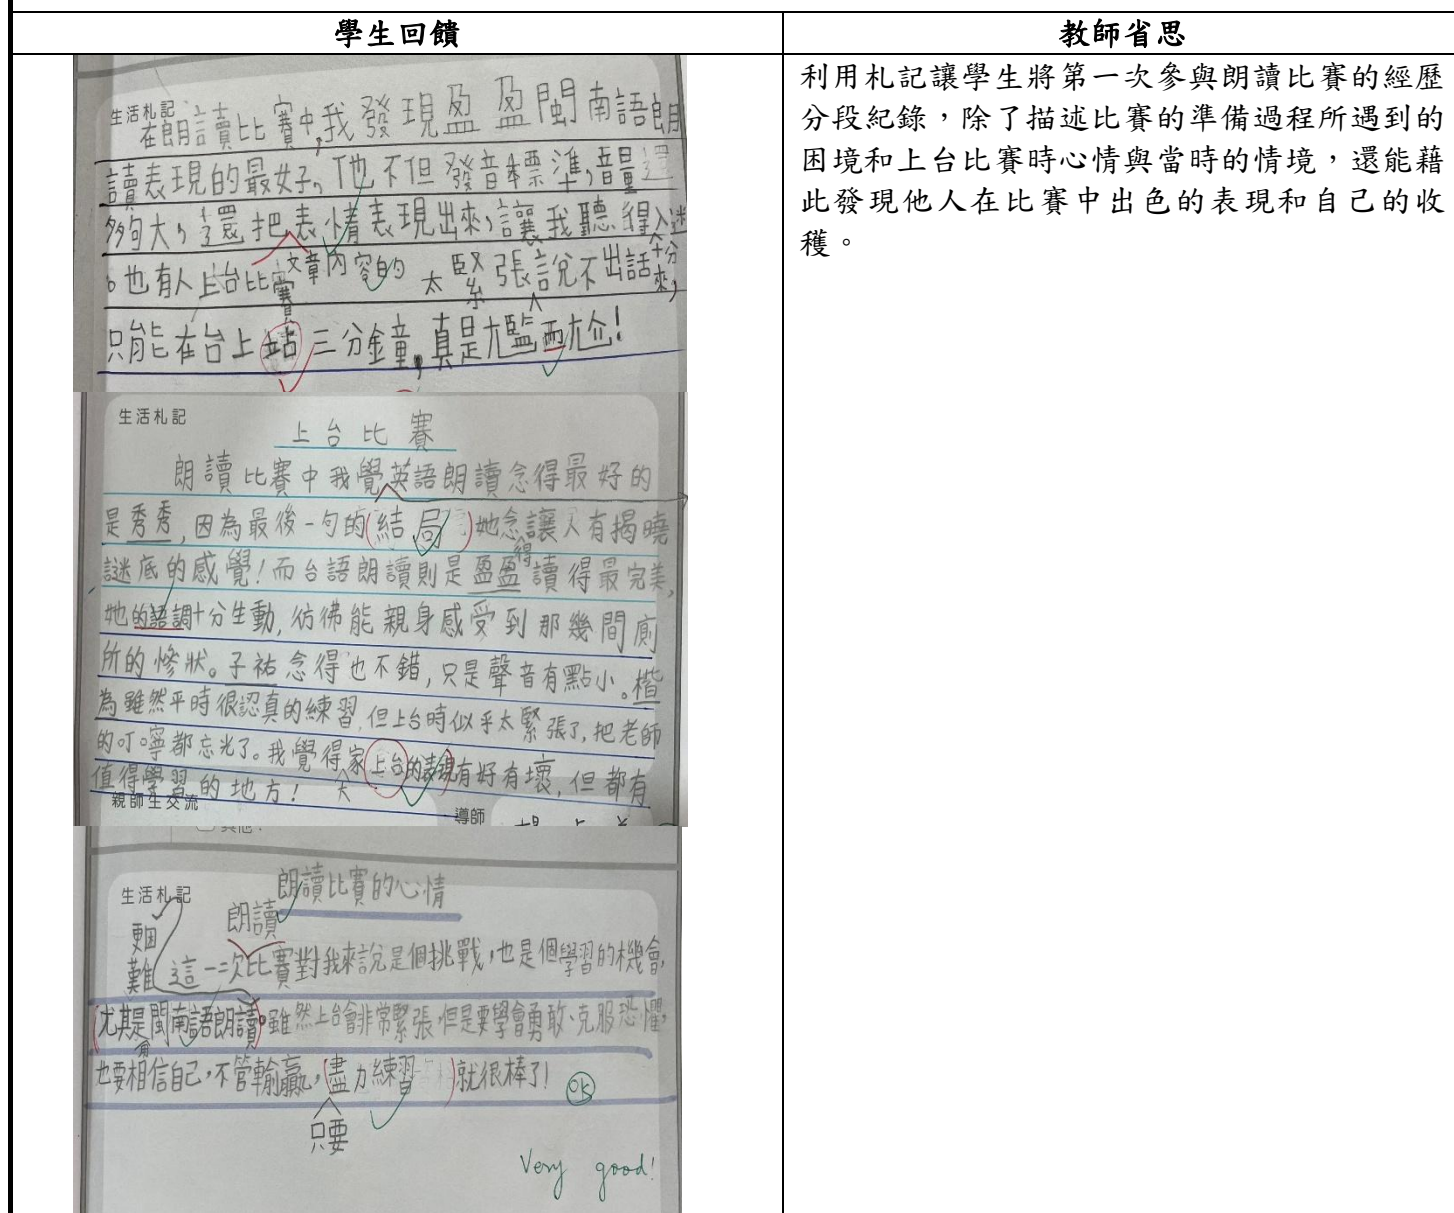 學生回饋
教師省思
生活札記
在朗讀比賽中,我發現盈盈閩南語朗
讀表現的最好,他不但發音標準,音量還
夠大,還把表情表現出來,讓我聽得入迷
文章內容的
。也有人上台比賽太緊張說不出話來,
十分
只能在台上站三分鐘,真是尷尬!
生活札記
上台比賽
朗讀比賽中我覺英語朗讀念得最好的
是秀秀,因為最後一句的(結局)她念讓人有揭曉
得
謎底的感覺!而台語朗讀則是盈盈讀得最完美,
她的語調十分生動,彷彿能親身感受到那幾間廁
所的慘狀。子祐念得也不錯,只是聲音有點小。楷
為雖然平時很認真的練習,但上台時似乎太緊張了,把老師
的叮嚀都忘光了。我覺得家上台的表現有好有壞,但都有
大
值得學習的地方!
親師生交流
導師
生活札記
朗讀比賽的心情
朗讀
更困
難
這一次比賽對我來說是個挑戰,也是個學習的機會,
(尤其是閩南語朗讀)。雖然上台會非常緊張,但是要學會勇敢、克服恐懼,
也要相信自己,不管輸贏,(盡力練習)就很棒了!
只要
OK
Very good!
利用札記讓學生將第一次參與朗讀比賽的經歷
分段紀錄,除了描述比賽的準備過程所遇到的
困境和上台比賽時心情與當時的情境,還能藉
此發現他人在比賽中出色的表現和自己的收
穫。